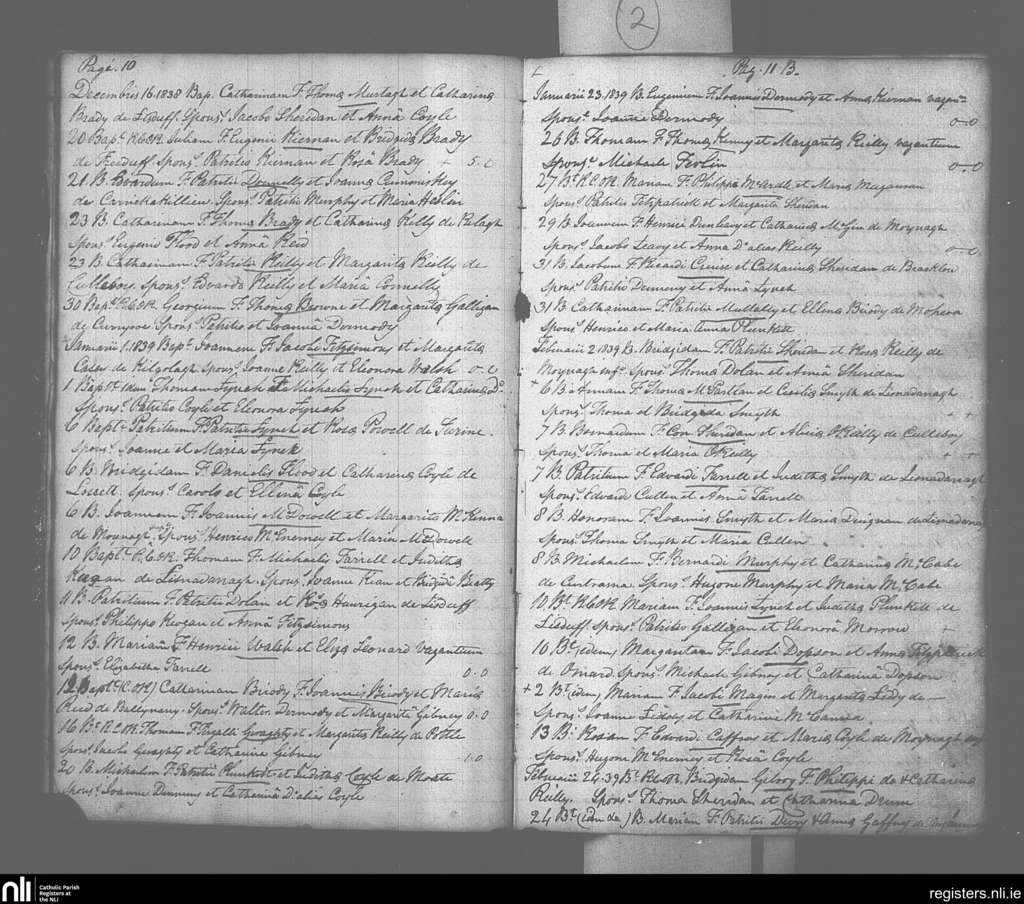 2
Page. 10
Decembris 16. 1838 Bap. Catharinam F. Thomæ Murtagh et Catharina
Brady de Lisduff. Sponsr. Jacobo Sheridan et Anna Coyle
20 Bapt. R.C.O.R. Juliam F. Eugenii Kiernan et Bridgida Brady
de Sponsr. Patritio Kiernan et Rosa Brady + 5. 0
21 B. F. Patritii Donnelly et Joanna
de Carrickakillew. Sponsr. Patritio Murphy et Maria
23 B. Catharinam F. Thomæ Brady et Catharina Rilly de Ralagh
Sponsr. Eugenio Flood et Anna Reid
23 B. Catharinam F. Patritii Reilly et Margarita Reilly de
Sponsr. Edvardo Reilly et Maria Connelly
30 Bapt. R.C.O.R. Georgium F. Thomæ Browne et Margarita Galligan
de Sponsr. Patritio et Joanna Dormody
Januarii 1. 1839 Bapt. Joannem F. Jacobi Fitzsimons et Margarita
de Kilgolagh Sponsr. Joanne Reilly et Eleonora Walsh 0. 0
1 Bapt. Thomam Lynch F. Michaelis Lynch et Catharina Do.
Sponsr. Patritio Coyle et Eleonora Lynch
6 Bapt. Patritium F. Patritii Lynch et Rosa Powell de
Sponsr. Joanne et Maria Lynch
6 B. Bridgidam F. Danielis Flood et Catharina Coyle de
Sponsr. Carolo et Ellena Coyle
6 B. Joannem F. Joannis McDowell et Margarita McKenna
de Moynagh. Sponsr. Henrico McEnerney et Maria McDowell
10 Bapt. R.C.O.R. Thomam F. Michaelis Farrell et Juditha
Keegan de Lisnadaragh. Sponsr. Joanne Kean et Brigida Beatty
11 B. Patritium F. Patritii Dolan et Rosa Hourigan de Lisduff
Sponsr. Philippo Keogan et Anna Fitzsimons
12 B. Mariam F. Henrici Walsh et Eliza Leonard Vagantium
Sponsr. Elizabetha Farrell 0. 0
12 Bapt. (R.C.O.R.) Catharinam Briody F. Joannis Briody et Maria
Reid de Ballynany. Sponsr. Walter Dermody et Margarita Gibney 0. 0
16 Bt. R.C.O.R. Thomam F. Geraghty et Margarita Reilly de Pottle
Sponsr. Jacobo Geraghty et Catharina Gibney 1 0
20 B. Michaelem F. Patritii Plunkett et Juditha Coyle de Moate
Sponsr. Joanne Dennany et Catharina Do. alias Coyle.
Pag. 11 B.
Januarii 23. 1839 B. Eugenium F. Joannis Dermody et Anna Kiernan vagan
Sponsr. Joanne Dermody 0-0
26 B. Thomam F. Thomæ Kenny et Margarita Reilly vagantium
Sponsr. Michaele 0-0
27 Bt. R.C.O.R. Mariam F. Philippi McArdle et Maria
Sponsr. Patritio Fitzpatrick et Margarita Sheridan
29 B. Joannem F. Henrici Dunleavy et Catharina McGin de Moynagh
Sponsr. Jacobo Leavy et Anna Do. alias Reilly 0-0
31 B. Jacobum F. Ricardi Cruise et Catharina Sheridan de Bracklon
Sponsr. Patritio Dennany et Anna Lynch
31 B. Catharinam F. Patritii Mullally et Ellena Briody de Mopera
Sponsr. Henrico et Maria Anna Plunkett
Februarii 2 1839 B. Bridgidam F. Patritii Sheridan et Rosa Reilly de
Moynagh Sponsr. Thoma Dolan et Anna Sheridan
+ 6 B. Annam F. Thomæ McPartlan et Cecilia Smyth de Lisnadaragh
Sponsr. Thoma et Bridgida Smyth + +
7 B. Bernardum F. Con Sheridan et Alicia OReilly de
Sponsr. Thoma et Maria OReilly + +
7 B. Patritium F. Edvardi Farrell et Juditha Smyth de Lisnadarragh
Sponsr. Edvardo Cullen et Anna Farrell
8 B. Honoram F. Joannis Smyth et Maria Duignan de Lisnadarra
Sponsr. Thoma Smyth et Maria Cullen
8 B. Michaelem F. Bernardi Murphy et Catharina McCabe
de Sponsr. Hugone Murphy et Maria McCabe
10 Bt. R.C.O.R. Mariam F. Joannis Lynch et Juditha Plunkett de
Lisduff Sponsr. Patritio Galligan et Eleonora Morrow
10 Bt. (idem) Margaritam F. Jacobi Dopson et Anna Fitzpatrick
de Omard. Sponsr. Michaele Gibney et Catharina Dopson
+ 2 Bt. (idem) Mariam F. Jacobi Magin et Margarita Lidy de —
Sponsr. Joanne Liddy et Catharina McCanna
13 B. Rosam F. Edwardi Caffrey et Maria Coyle de Moynagh
Sponsr. Hugone McEnerney et Rosa Coyle
Februarii 24. 39 Bt. R.C.O.R. Bridgidam Gilroy F. Philippi do & Catharina
Reilly. Sponsr. Thoma Sheridan et Catharina Dunn
24 Bt. (idem do) B. Mariam F. Patritii & Anna Gaffney de
nli
Catholic Parish
Registers at
the NLI
registers.nli.ie